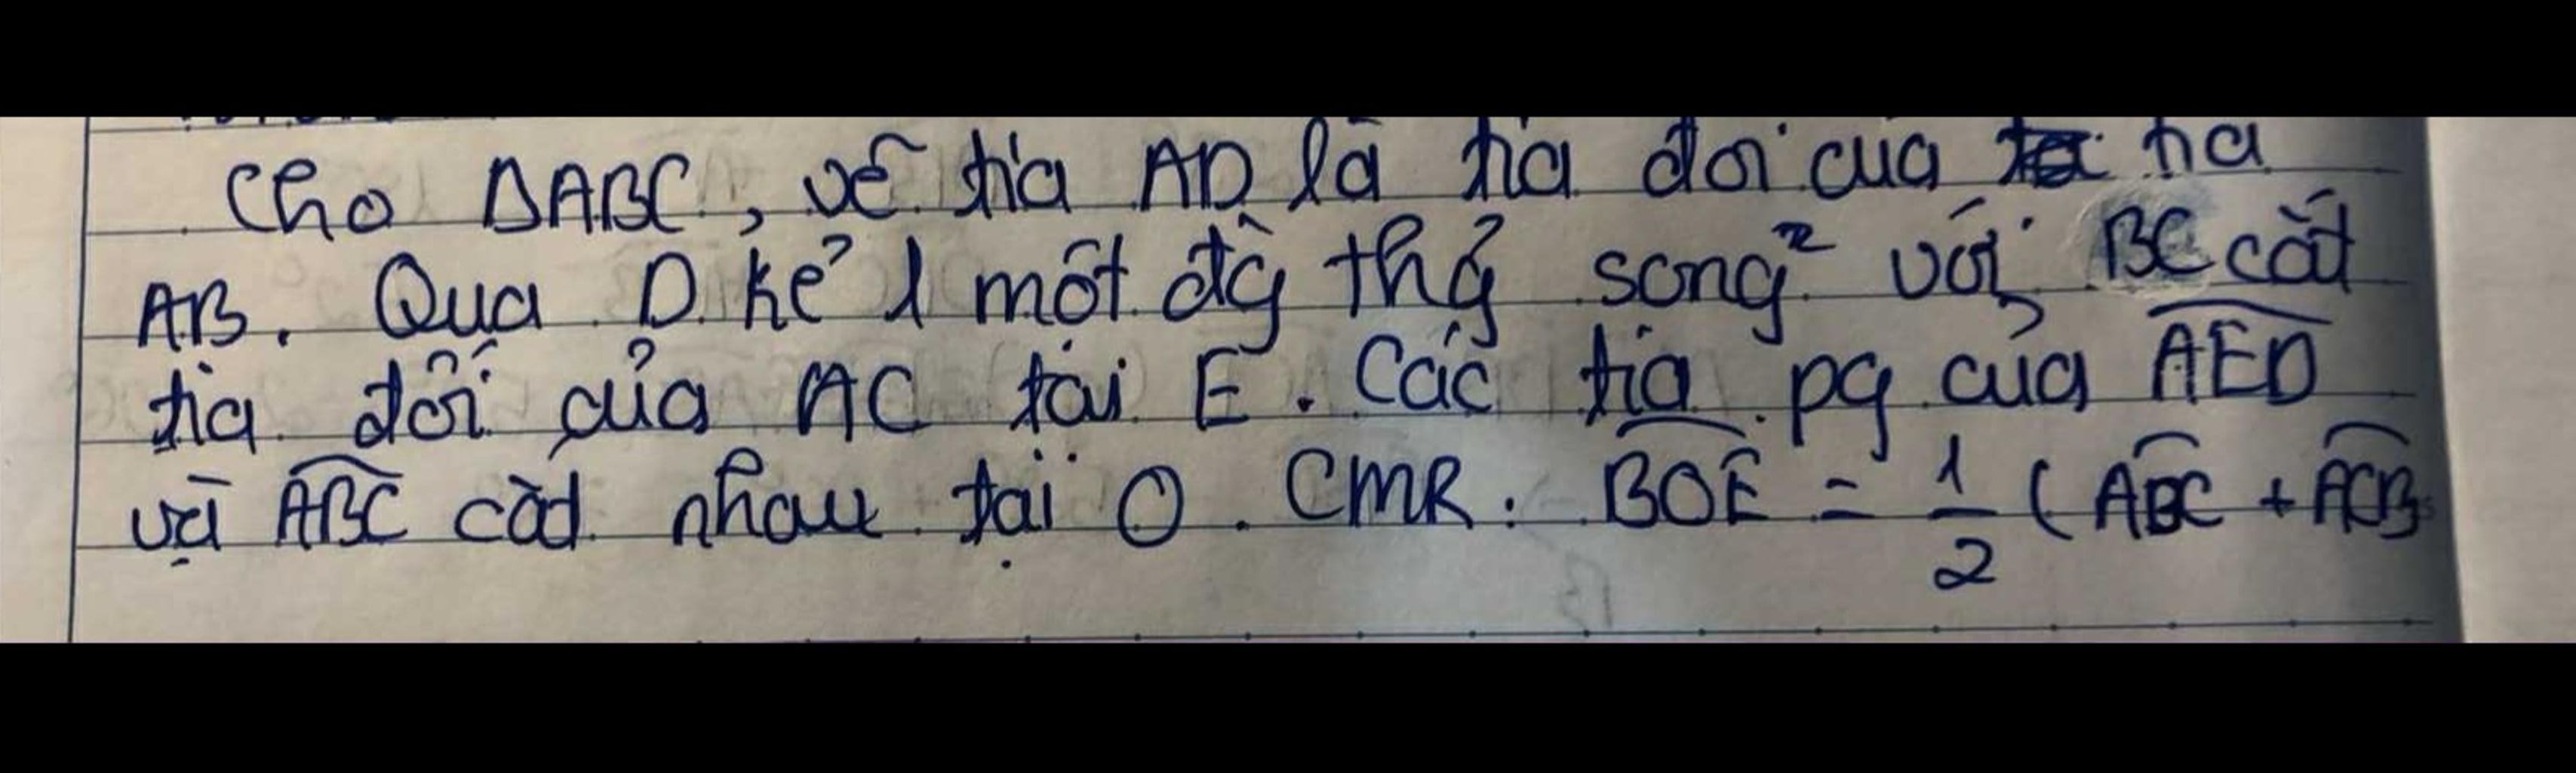 Cho ΔABC, vẽ tia AD là tia đối của tia
AB. Qua D kẻ 1 một đg thg̉ song² với BC cắt
tia đối của AC tại E. Các tia pg của AED
và ABC cắt nhau tại O. CMR: BOE = 1/2 (ABC + ACB